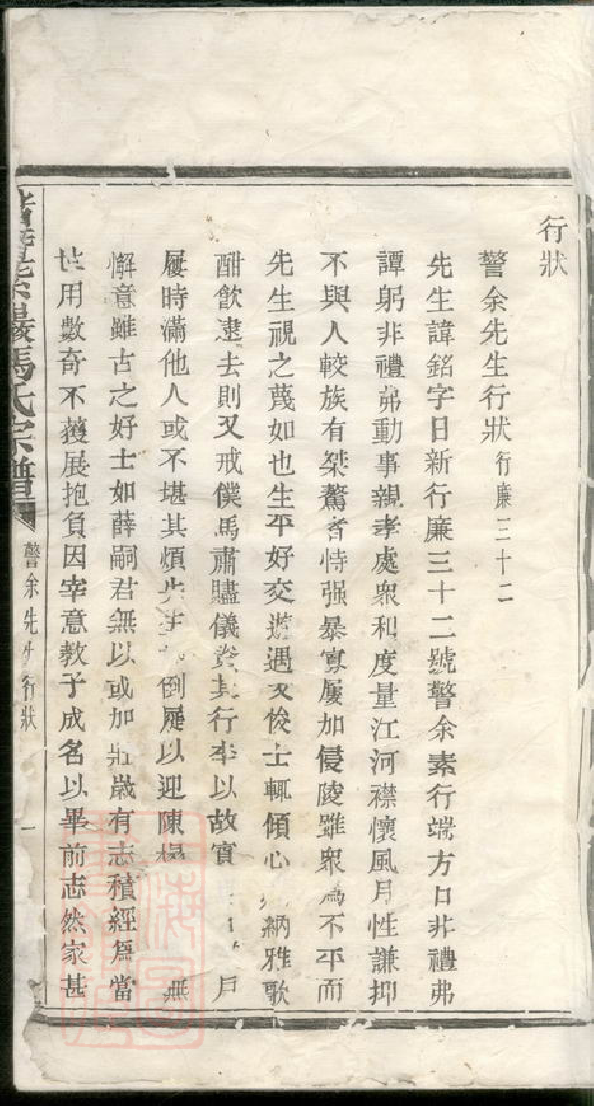 行狀
警余先生行狀行廉三十二
先生諱銘字日新行廉三十二號警余素行端方口非禮弗
譚躬非禮弗動事親孝處衆和度量江河襟懷風月性謙抑
不與人較族有桀驁者恃强暴寡屢加侵陵雖衆爲不平而
先生視之蔑如也生平好交遊遇文俊士輒傾心納雅歌
酣飲逮去則又戒僕馬肅贐儀資其行李以故賓戶
屨時滿他人或不堪其煩先生倒屣以迎陳榻無
懈意雖古之好士如薛嗣君無以或加壯歲有志積經爲當
世用數奇不獲展抱負因宰意教子成名以畢前志然家甚
馬氏宗譜
警余先生行狀
一